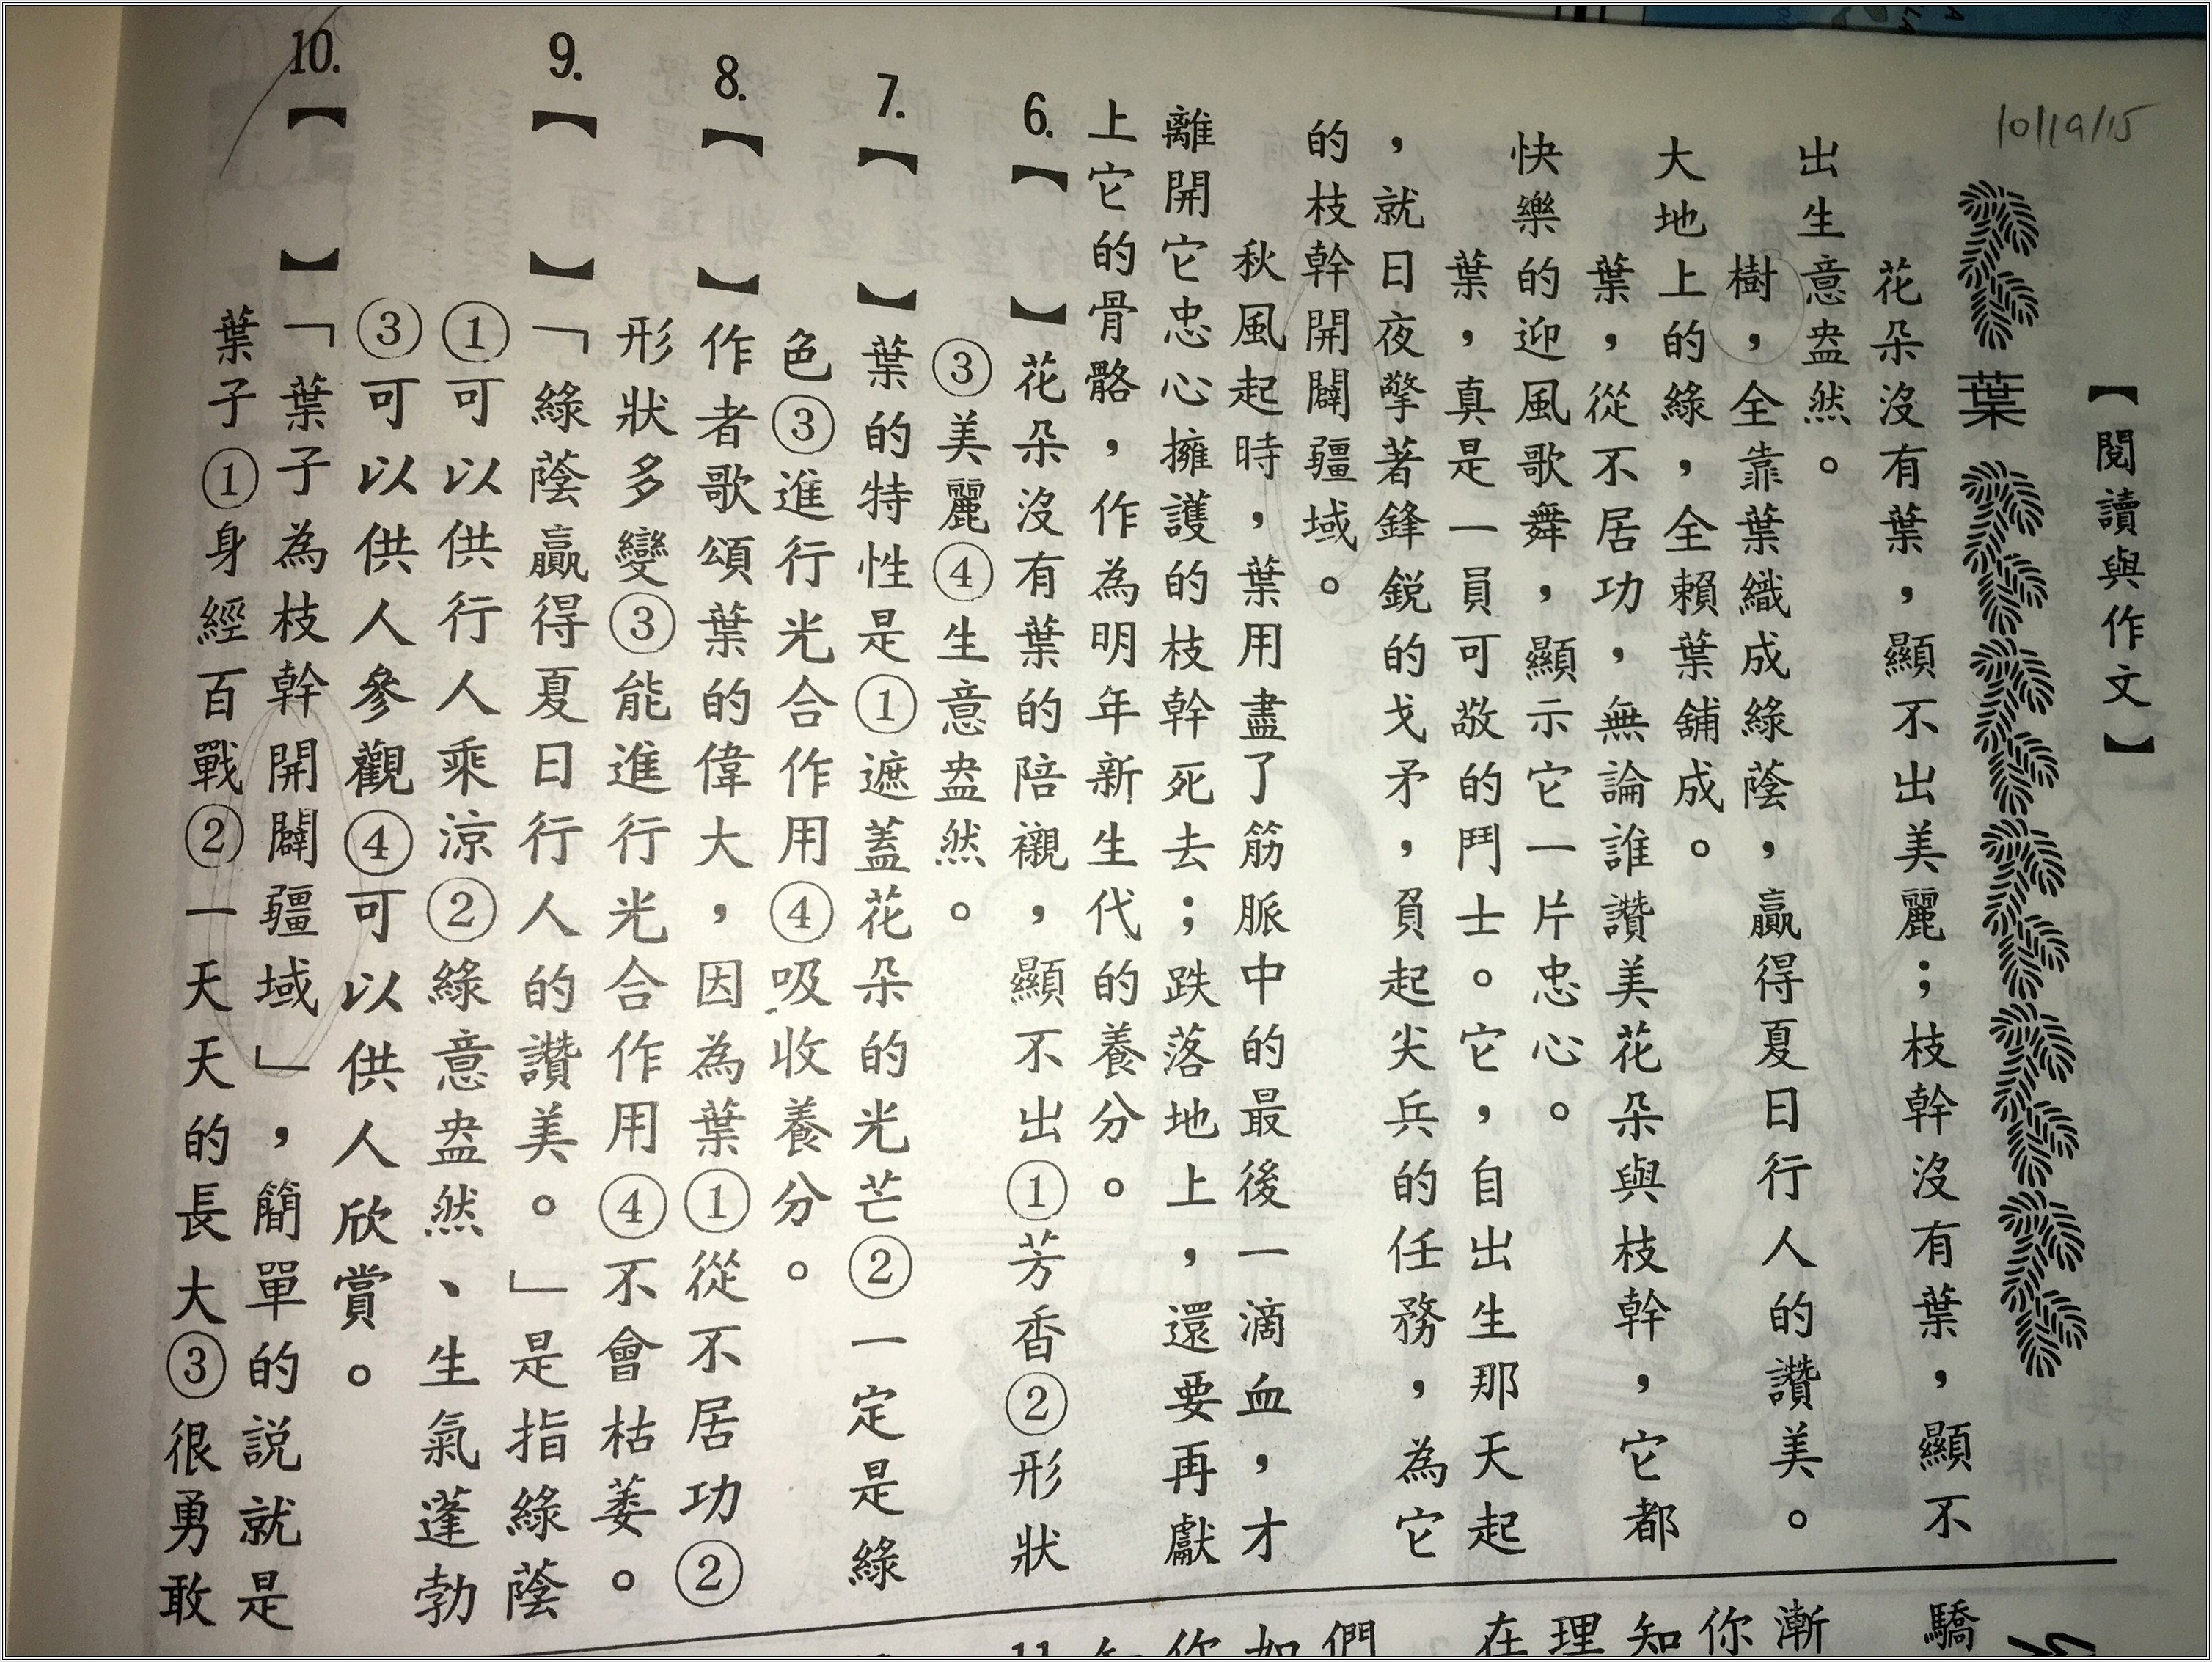 10/19/15
【閱讀與作文】
葉
花朵沒有葉，顯不出美麗；枝幹沒有葉，顯不
出生意盎然。
樹，全靠葉織成綠蔭，贏得夏日行人的讚美。
大地上的綠，全賴葉舖成。
葉，從不居功，無論誰讚美花朵與枝幹，它都
快樂的迎風歌舞，顯示它一片忠心。
葉，真是一員可敬的鬥士。它，自出生那天起
，就日夜擎著鋒銳的戈矛，負起尖兵的任務，為它
的枝幹開闢疆域。
秋風起時，葉用盡了筋脈中的最後一滴血，才
離開它忠心擁護的枝幹死去；跌落地上，還要再獻
上它的骨骼，作為明年新生代的養分。
6.【　】花朵沒有葉的陪襯，顯不出①芳香②形狀
③美麗④生意盎然。
7.【　】葉的特性是①遮蓋花朵的光芒②一定是綠
色③進行光合作用④吸收養分。
8.【　】作者歌頌葉的偉大，因為葉①從不居功②
形狀多變③能進行光合作用④不會枯萎。
9.【　】「綠蔭贏得夏日行人的讚美。」是指綠蔭
①可以供行人乘涼②綠意盎然、生氣蓬勃
③可以供人參觀④可以供人欣賞。
10.【　】「葉子為枝幹開闢疆域」，簡單的説就是
葉子①身經百戰②一天天的長大③很勇敢
驕
漸
你
知
理
在
們
如
你
11